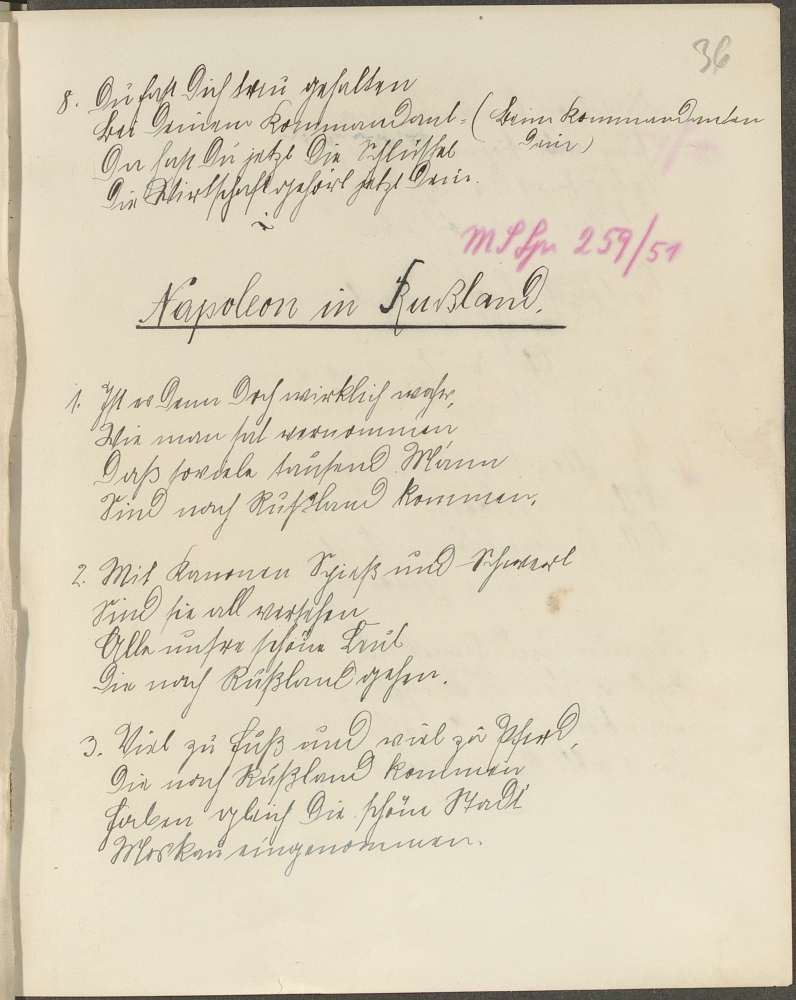 36
8. Du hast Dich treu gehalten
bei Deinem Kommandant. (beim Kommandanten
Dein)
Da hast Du jetzt die Schlüssel
Die Wirtschaft gehört jetzt Dein.
259/51
Napoleon in Rußland.
1. Ist es denn doch wirklich wahr,
Wie man hat vernommen
Daß soviele tausend Mann
Sind nach Rußland kommen.
2. Mit Kanonen Spieß und Schwert
Sind sie all versehen
Alle unsre schöne Leut
Die nach Rußland gehen.
3. Viel zu Fuß und viel zu Pferd,
Die nach Rußland kommen
Haben gleich die schöne Stadt
Moskau eingenommen.